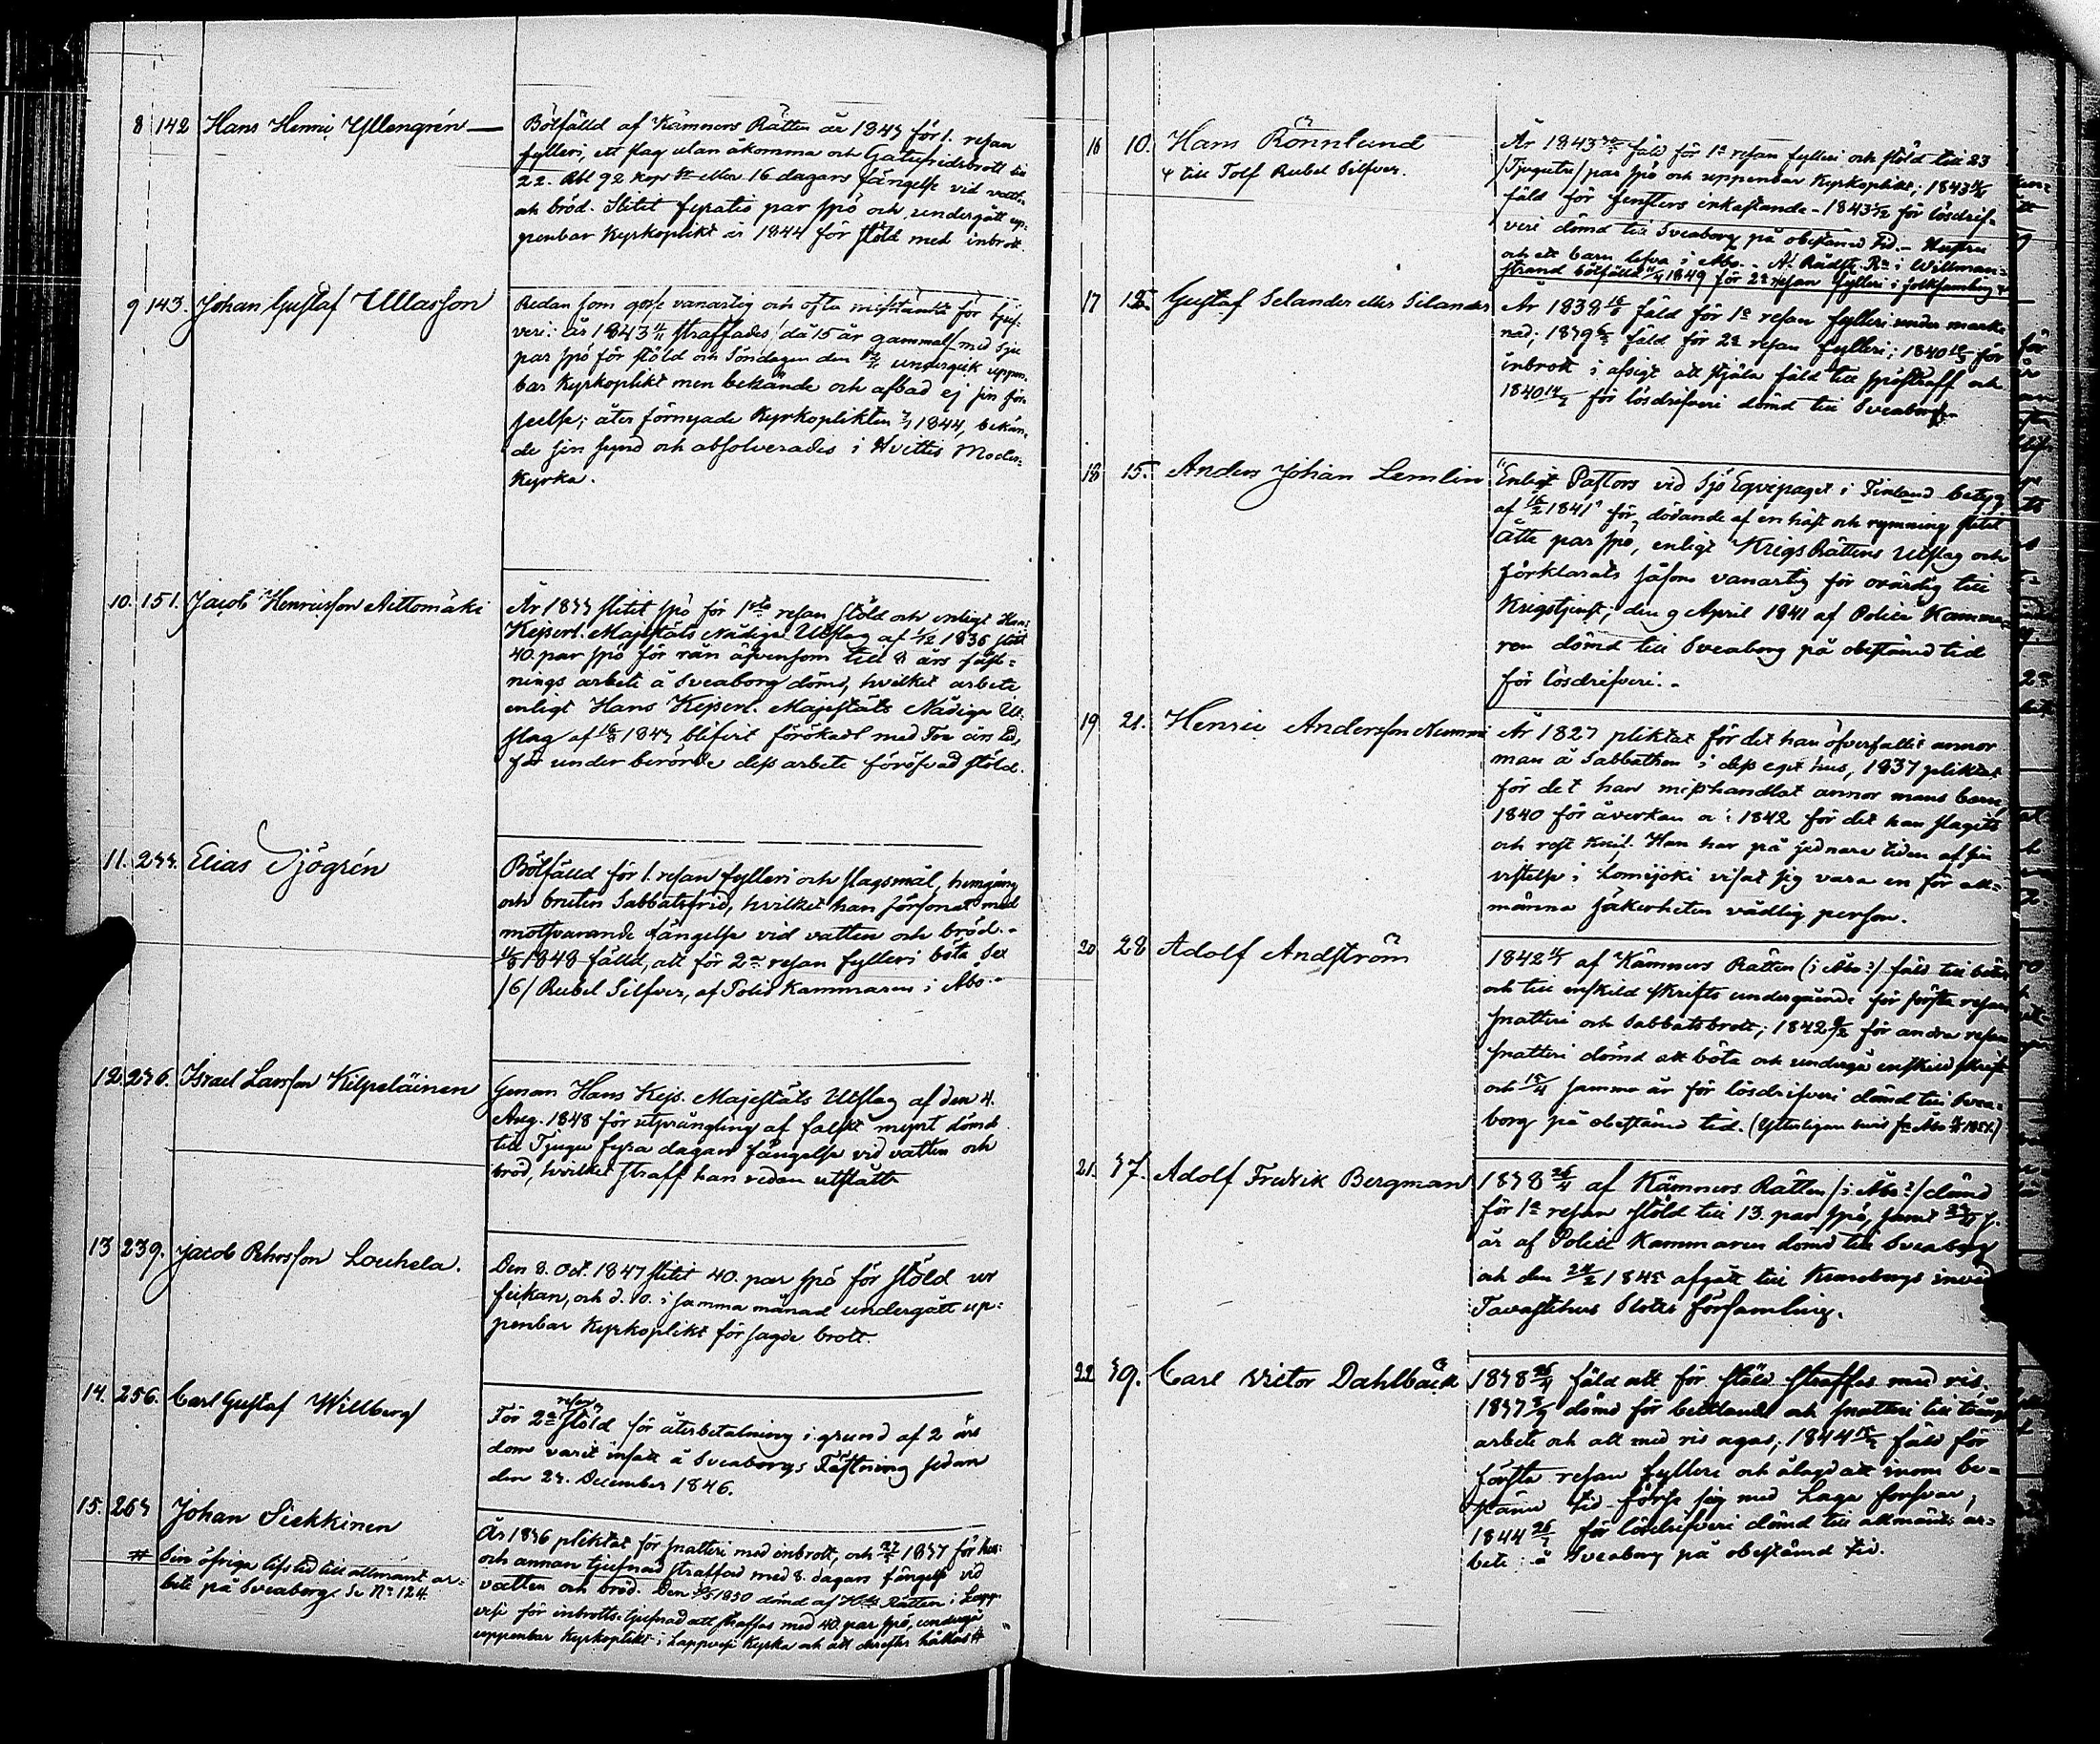 8 142 Hans Henric Yllengrén —
Bötfälld af Kämners Rätten år 1843 för 1. resan
fylleri, ett slag utan åkomma och Gatufridsbrott till
22. Rbl 92 kop Sr eller 16 dagars fängelse vid vatten
och bröd. Slitit fyratio par spö och undergått up-
penbar Kyrkoplikt år 1844 för stöld med inbrott.
9 143. Johan Gustaf Ullasson
Redan som gosse vanartig och ofta misstänkt för tjuf-
veri: år 1843 straffades då 15 år gammal med sju
par spö för stöld och Söndagen den undergick uppen-
bar Kyrkoplikt men bekände och afbad ej sin för-
seelse; åter förnyade Kyrkoplikten 1844, bekän-
de sin synd och absolverades i Hvittis Moder-
Kyrka.
10. 151. Jacob Henricsson Aittomäki
År 1833 slitit spö för 1sta resan stöld och enligt Hans
Kejserl. Majestäts Nådiga Utslag af 1/12 1836 slitit
40 par spö för rån äfvensom till 8 års fäst-
nings arbete å Sveaborg dömd, hvilket arbete
enligt Hans Kejserl. Majestäts Nådiga Ut-
slag af 1843 blifvit förökadt med Tre års tid,
för under berörde dess arbete föröfvad stöld.
11. 233. Elias Sjögrén
Bötfälld för 1. resan fylleri och slagsmål, hemgång
och bruten Sabbatsfrid, hvilket han försonat med
motsvarande fängelse vid vatten och bröd.-
1848 fälld, att för 2a resan fylleri böta Sex
/6/ Rubel Silfver, af Polis Kammaren i Åbo.-
12. 236. Israel Larsson Kilpeläinen
Genom Hans Kejs. Majestäts Utslag af den 4.
Aug. 1848 för utprångling af falskt mynt dömd
till Tjugu fyra dagars fängelse vid vatten och
bröd, hvilket straff han redan utstått
13 239. Jacob Rehrsson Louhela.
Den 8. Oct. 1847 slitit 40. par spö för stöld ur
fickan, och d. 10. i samma månad undergått up-
penbar Kyrkoplikt för sagde brott.
14. 256. Carl Gustaf Willberg
För 2a resan stöld för återbetalning i grund af 2 års
dom varit insatt å Sveaborgs Fästning sedan
den 23. December 1846.
15. 263 Johan Siekkinen
# Sin öfriga lifstid till allmänt ar-
bete på Sveaborg. Se No 124.
År 1836 pliktat för snatteri med inbrott, och 1837 för
och annan tjufnad straffad med 8. dagars fängelse vid
vatten och bröd. Den 1850 dömd af Rätten i Lapp-
vesi för inbrotts-tjufnad att straffas med 40. par spö, undergå
uppenbar Kyrkoplikt i Lappvesi Kyrka och att derefter hållas #
16 10. Hans Rönnlund
till Tolf Rubel Silfver.
År 1843 fäld för 1a resan fylleri och stöld till 23
/Tjugutre/ par spö och uppenbar Kyrkoplikt; 1843
fäld för fensters inkastande - 1843 för lösdrif-
veri dömd till Sveaborg på obestämd tid. - Hustru
och ett barn lefva i Åbo. - Af Rådst. Rn i Willman-
strand bötfälld 1849 för 2a resan fylleri i folksamling
17 12. Gustaf Selander eller Silander
År 1838 fäld för 1a resan fylleri under mark-
nad; 1839 fäld för 2a resan fylleri; 1840 för
inbrott i afsigt att stjäla fäld till spöstraff och
1840 för lösdrifveri dömd till Sveaborg.
18 15. Anders Johan Lemlin
"Enligt Pastors vid Sjö Eqvipaget i Finland betyg
af 1841" för dödande af en häst och rymning slitit
åtta par spö, enligt KrigsRättens Utslag och
förklarats såsom vanartig för ovärdig till
Krigstjenst; den 9 April 1841 af Police Kamma-
ren dömd till Sveaborg på obestämd tid
för lösdrifveri.-
19 21. Henric Andersson Nummi
År 1827 pliktat för det han öfverfallit annor
man å Sabbathen i dess eget hus, 1837 pliktat
för det han misshandlat annor mans barn,
1840 för åverkan o: 1842 för det han slagits
och Knif. Han har på sednare tiden af sin
vistelse i Lomijoki visat sig vara en för all-
männa säkerheten vådlig person.
20 28 Adolf Andström
1842 af Kämners Rätten (i Åbo?) fäld till böter
och till enskild skrifts undergående för första resan
snatteri och Sabbatsbrott; 1842 för andra resan
snatteri dömd att böta och undergå enskild skrift
och 15/4 samma år för lösdrifveri dömd till Svea-
borg på obestämd tid.
21. 37. Adolf Fredrik Bergman
1838 26/4 af Kämners Rätten (i Åbo?) dömd
för 1a resan stöld till 13. par spö, samt
år af Police Kammaren dömd till Sveaborg
och den 24/2 1845 afgått till Kronoborgs invid
Tavastehus Slotts församling.
22 39. Carl Victor Dahlbäck
1838 fäld att för stöld straffas med ris,
1837 dömd för bettlande och snatteri till
arbete och att med ris agas; 1844 fäld för
första resan fylleri och ålagd att inom be-
stämd tid förse sig med Laga försvar;
1844 för lösdrifveri dömd till allmänt ar-
bete å Sveaborg på obestämd tid.